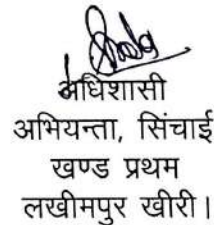 अधिशासी
अभियन्ता, सिंचाई
खण्ड प्रथम
लखीमपुर खीरी।